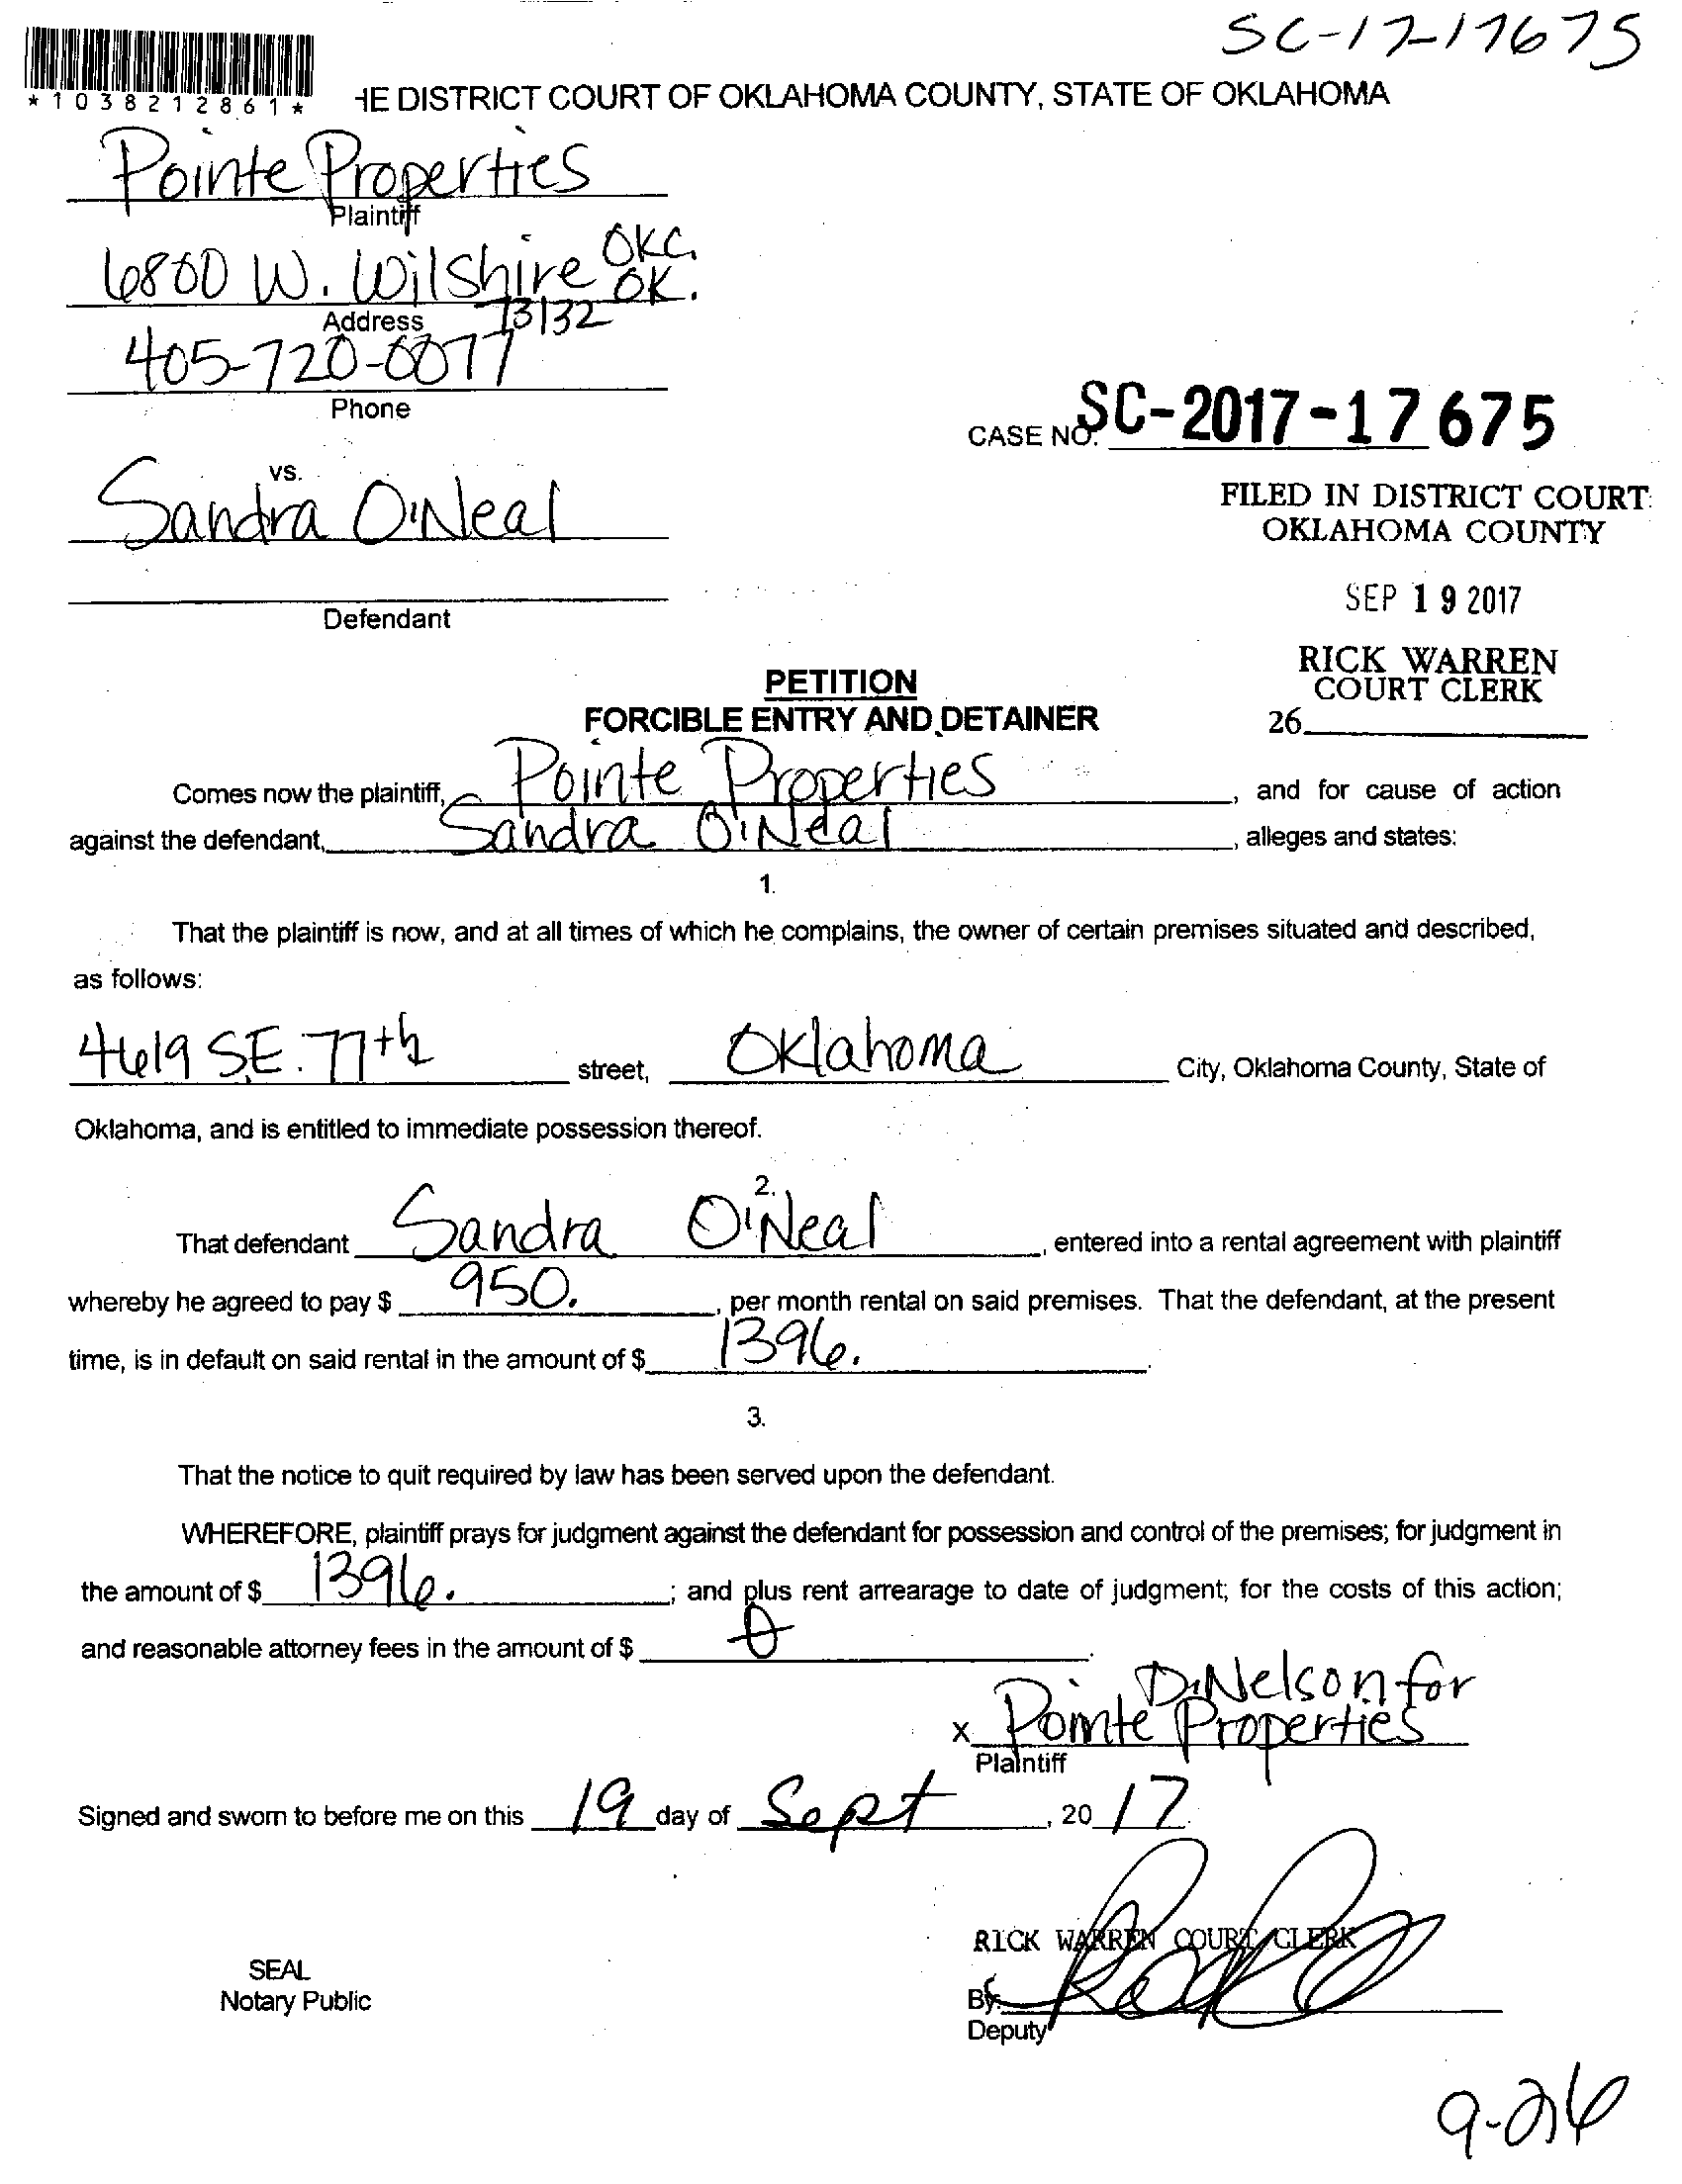 SC-17-17675
*1038212861*
HE DISTRICT COURT OF OKLAHOMA COUNTY, STATE OF OKLAHOMA
Pointe Properties
Plaintiff
6800 W. Wilshire OKC. OK.
Address 73132
405-720-0077
Phone
CASE NO. SC-2017-17675
vs.
Sandra O'Neal
FILED IN DISTRICT COURT
OKLAHOMA COUNTY
Defendant
SEP 19 2017
RICK WARREN
COURT CLERK
26
PETITION
FORCIBLE ENTRY AND DETAINER
Comes now the plaintiff, Pointe Properties, and for cause of action
against the defendant, Sandra O'Neal, alleges and states:
1.
That the plaintiff is now, and at all times of which he complains, the owner of certain premises situated and described,
as follows:
4619 S.E. 77th street, Oklahoma City, Oklahoma County, State of
Oklahoma, and is entitled to immediate possession thereof.
2.
That defendant Sandra O'Neal, entered into a rental agreement with plaintiff
whereby he agreed to pay $ 950., per month rental on said premises. That the defendant, at the present
time, is in default on said rental in the amount of $ 1396..
3.
That the notice to quit required by law has been served upon the defendant.
WHEREFORE, plaintiff prays for judgment against the defendant for possession and control of the premises; for judgment in
the amount of $ 1396. ; and plus rent arrearage to date of judgment; for the costs of this action;
and reasonable attorney fees in the amount of $ 0.
D. Nelson for
x Pointe Properties
Plaintiff
Signed and sworn to before me on this 19 day of Sept, 20 17.
RICK WARREN COURT CLERK
SEAL
Notary Public
By:
Deputy
9-26